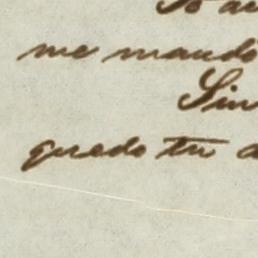 me mando
Sin
quedo tu